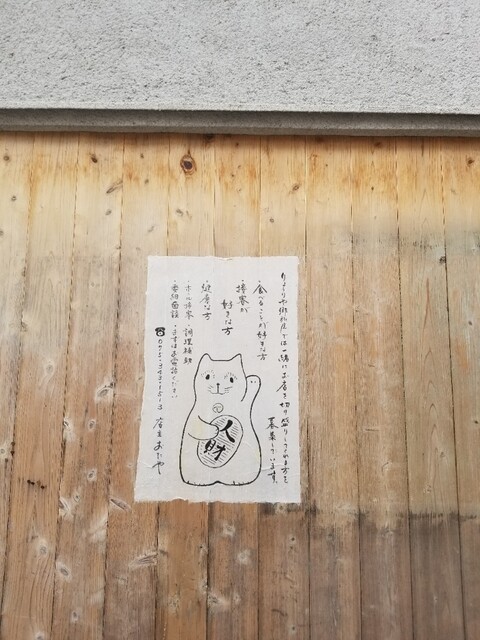 りょうりや御旅屋では一緒にお店を切り盛りしてくれる方を
募集しています。
・食べることが好きな方
・接客が
好きな方
・健康な方
ホール接客・調理補助
・委細面談・まずはお電話ください
☎075-353-1513 店主 おたや
人財